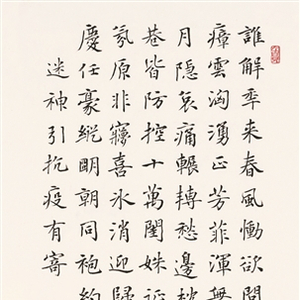 誰解秊来春風慟欲問
瘴雲洶湧正芳菲渾無
月隱哀痛輾轉愁邊
巷皆防控十萬閨姝
氛原非寱喜氷消迎歸
慶任豪縱明朝同袍約
迷神引抗疫有寄